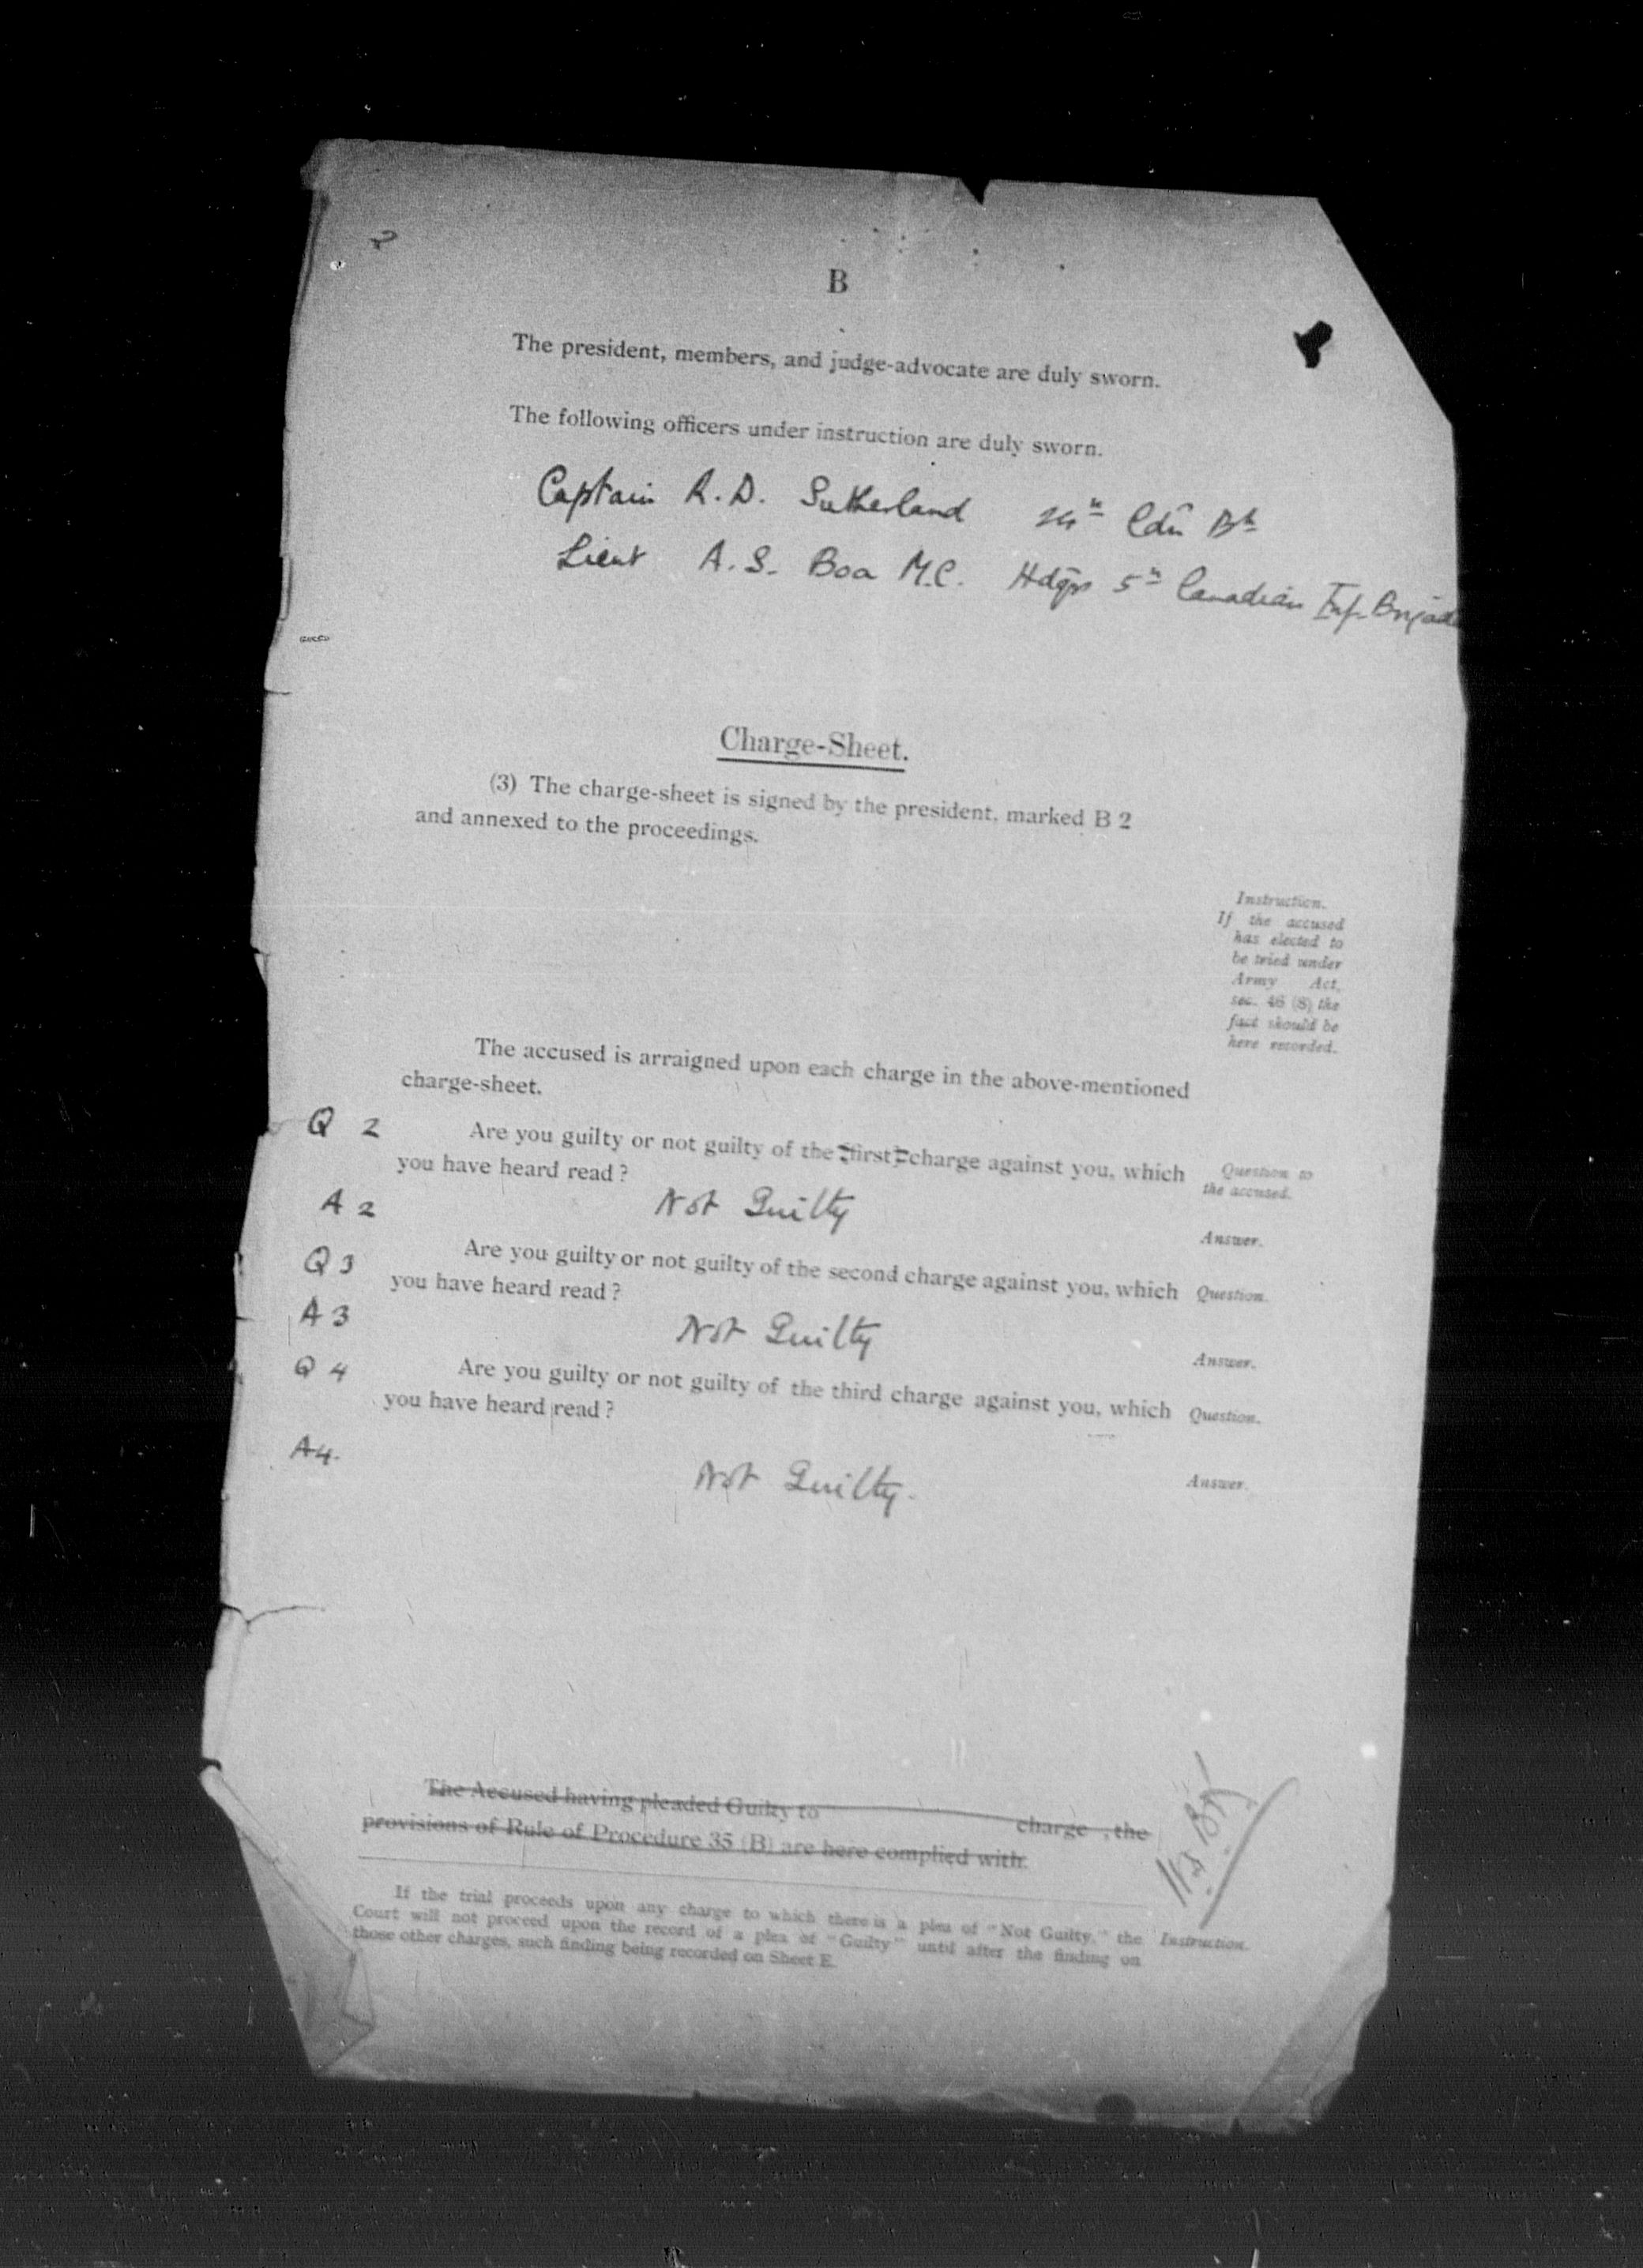 2
B
The president, members, and judge-advocate are duly sworn.
The following officers under instruction are duly sworn.
Captain R.D. Sutherland 24th Cdn Bn
Lieut A.S. Boa M.C. Hdqrs 5th Canadian Inf. Brigade
Charge-Sheet.
(3) The charge-sheet is signed by the president, marked B 2
and annexed to the proceedings.
Instruction.
If the accused
has elected to
be tried under
Army Act,
sec. 46 (8) the
fact should be
here recorded.
The accused is arraigned upon each charge in the above-mentioned
charge-sheet.
Q 2 Are you guilty or not guilty of the first charge against you, which
you have heard read?
Question to
the accused.
A 2 Not Guilty
Answer.
Q 3 Are you guilty or not guilty of the second charge against you, which Question.
you have heard read?
A 3 Not Guilty
Answer.
Q 4 Are you guilty or not guilty of the third charge against you, which Question.
you have heard read?
A4. Not Guilty.
Answer.
The Accused having pleaded Guilty to charge , the
provisions of Rule of Procedure 35 (B) are here complied with.
If the trial proceeds upon any charge to which there is a plea of "Not Guilty," the
Court will not proceed upon the record of a plea of "Guilty" until after the finding on
those other charges, such finding being recorded on Sheet E.
Instruction.